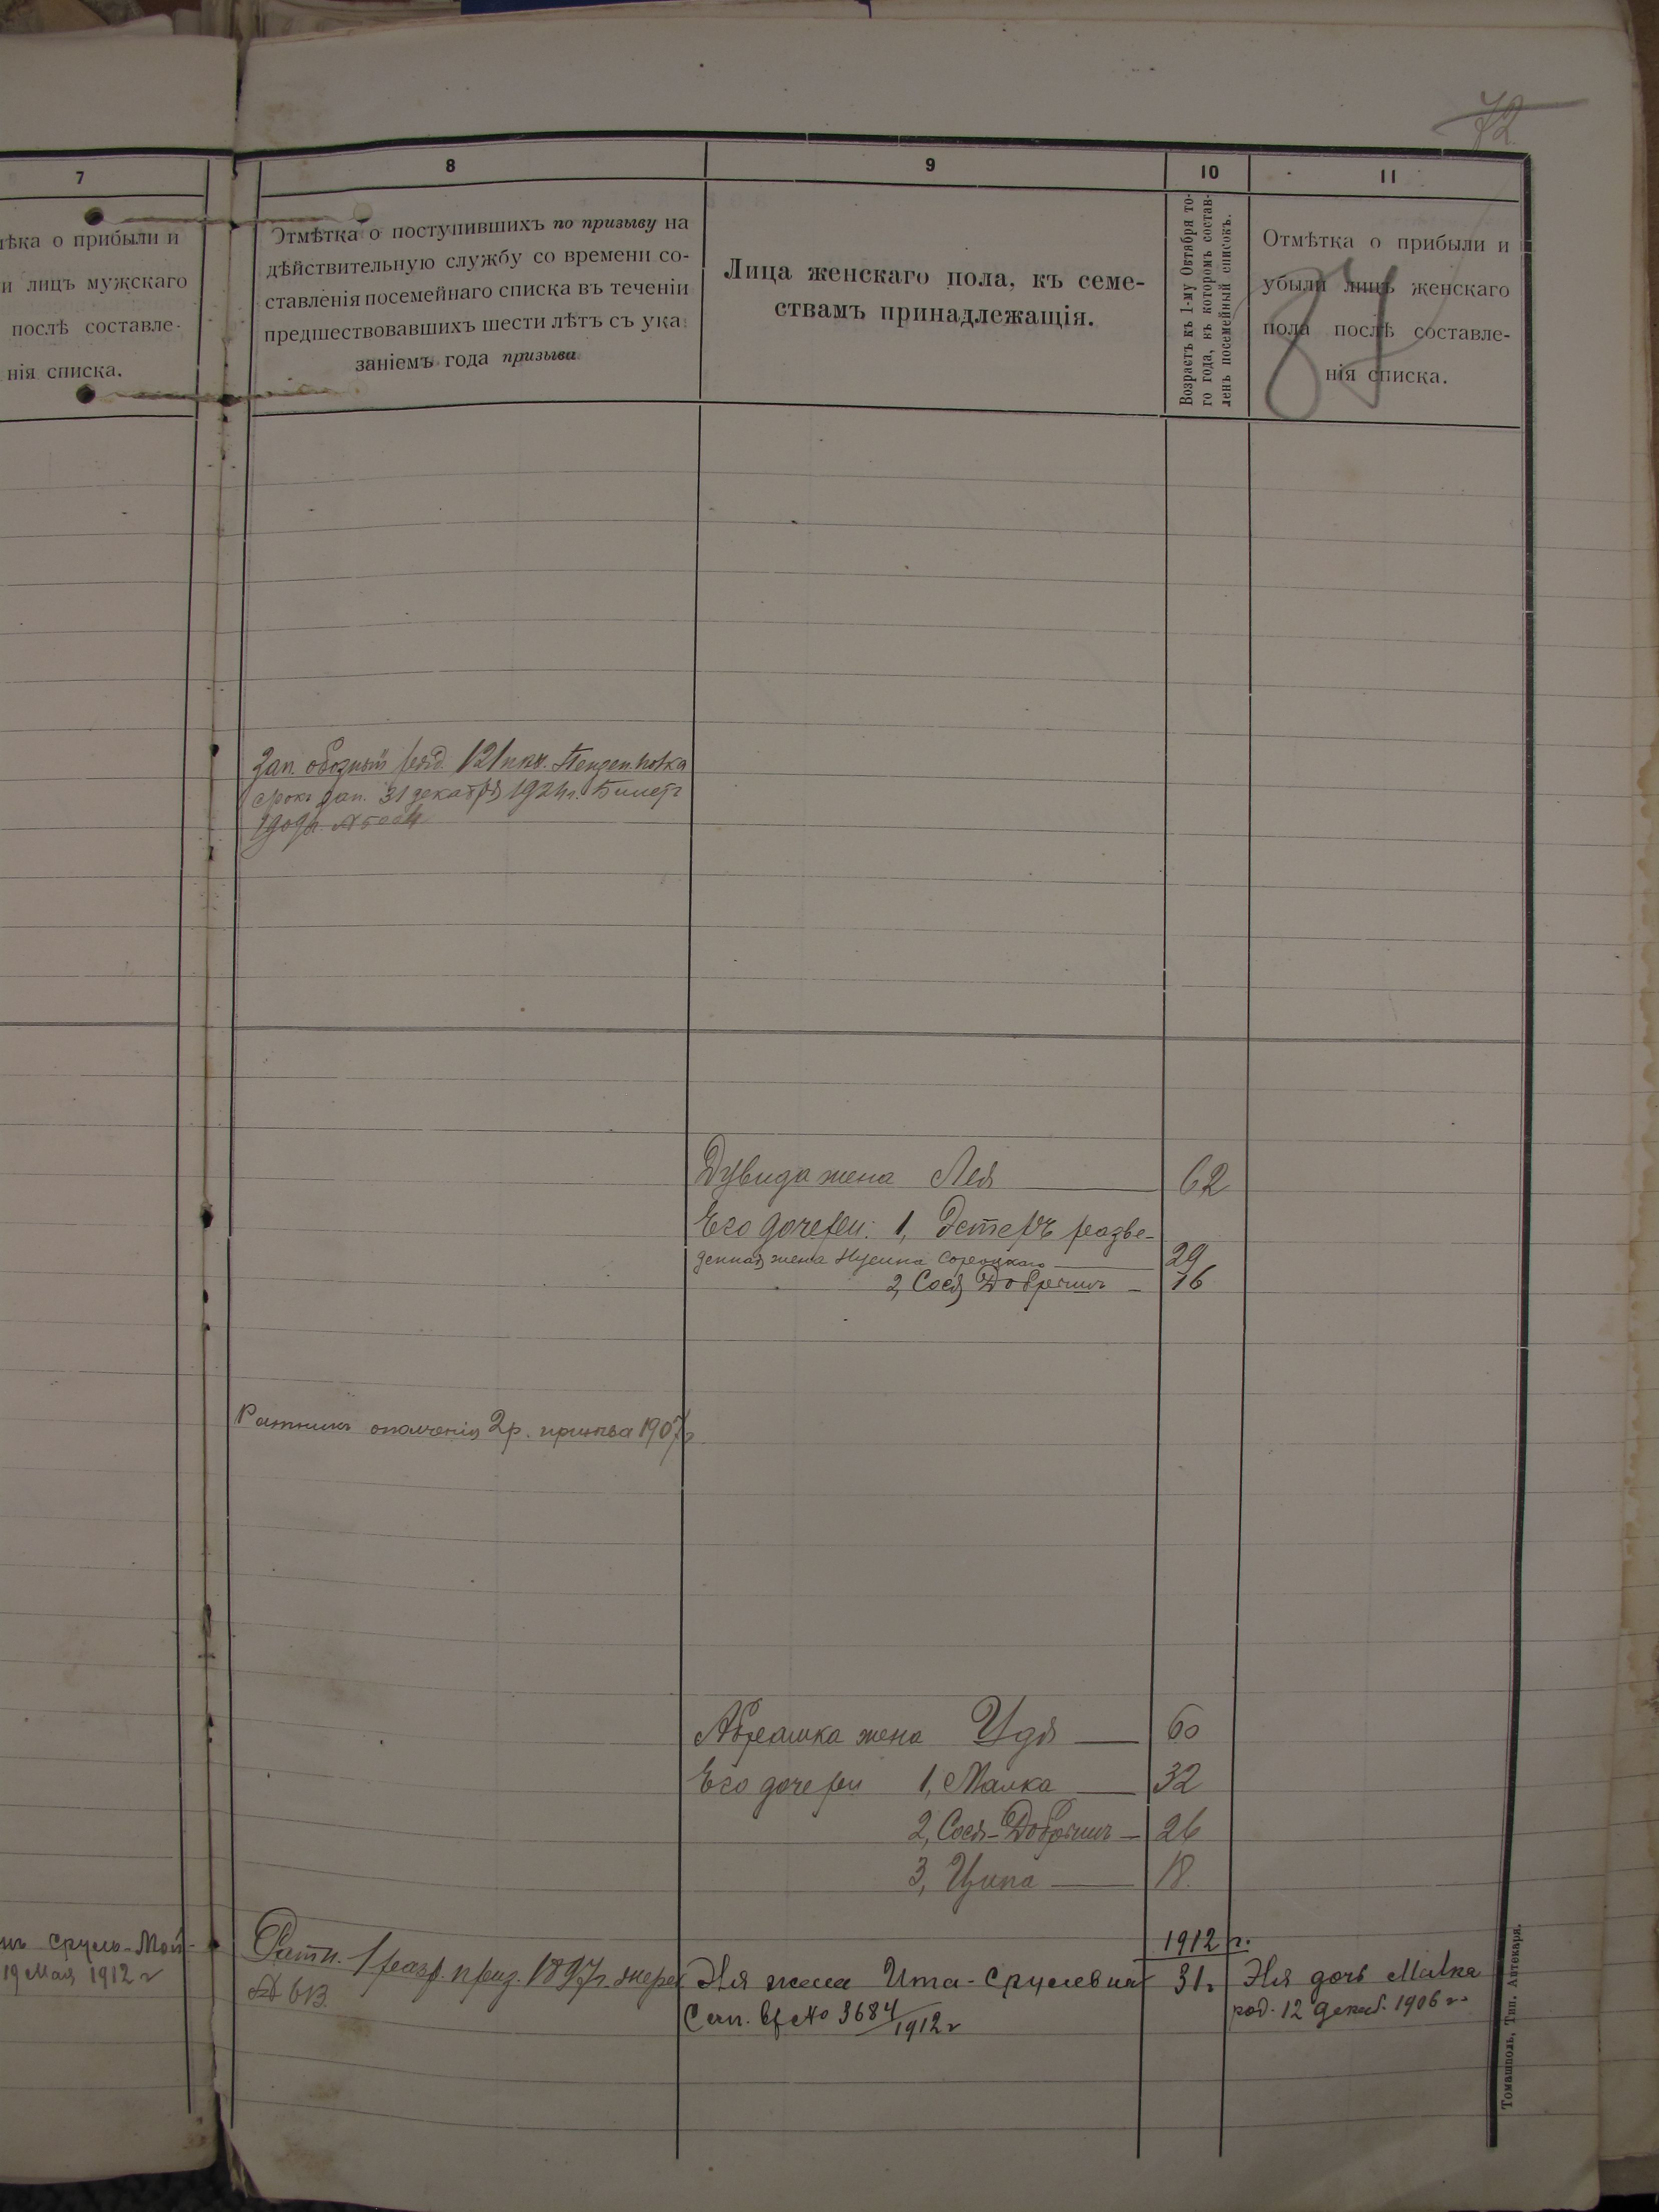 72
7
8
9
10
11
ѣка о прибыли и
и лицъ мужскаго
послѣ составле-
нія списка.
Отмѣтка о поступившихъ по призыву на
дѣйствительную службу со времени со-
ставленія посемейнаго списка въ теченіи
предшествовавшихъ шести лѣтъ съ ука
заніемъ года призыва
Лица женскаго пола, къ семе-
ствамъ принадлежащія.
Возрастъ къ 1-му Октября то-
го года, къ которомъ состав-
ленъ посемейный списокъ.
Отмѣтка о прибыли и
убыли лицъ женскаго
пола послѣ составле-
нія списка.
Зап. обозный ряд. 121 пѣх.
срокъ зап. 31 декабря 1924 г. Билетъ
Дувида жена Лея 62
Его дочери: 1, Эстеръ разве-
денная жена 29
2, Сося Добрышъ 16
Ратникъ ополченія 2 р. призыва 1907 г
Абрашка жена Удя 60
Его дочери 1, Малка 32
2, Сося-Добрышъ 26
3, Ципа 18.
Сруль-Мой-
19 Мая 1912 г
Ратн. 1 разр. приз. 1897 г. жереб
№ 613
1912 г.
Эля жена Ита-Срулевна 31 г
№ 3684/1912 г
Эля дочь Малка
род. 12 декаб. 1906 г.
Томашполь, Тип. Аптекаря.